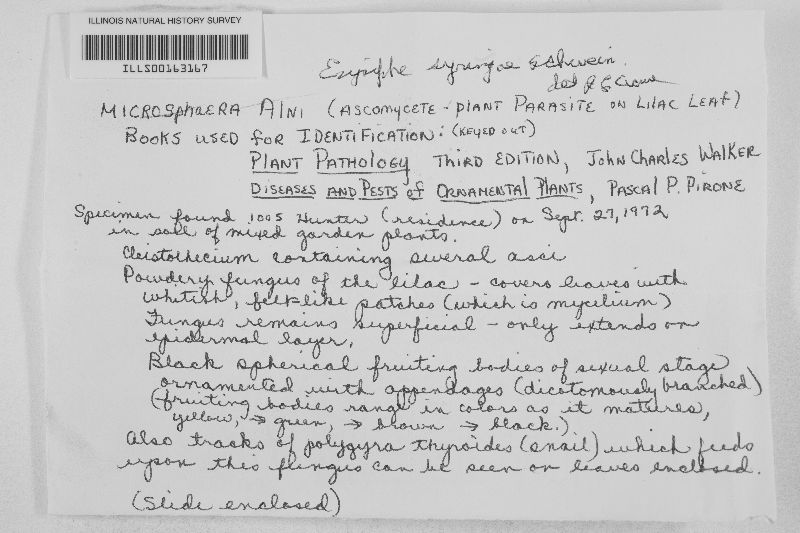 ILLINOIS NATURAL HISTORY SURVEY
ILLS00163167
Erysiphe syringae Schwein.
det J. L. Crane
MICROSPHAERA ALNI (ASCOMYCETE - PLANT PARASITE ON LILAC LEAF)
BOOKS USED FOR IDENTIFICATION: (KEYED OUT)
PLANT PATHOLOGY THIRD EDITION, JOHN CHARLES WALKER
DISEASES AND PESTS of ORNAMENTAL PLANTS, PASCAL P. PIRONE
Specimen found 1005 Hunter (residence) on Sept. 27, 1972
in soil of mixed garden plants.
Cleistothecium containing several asci
Powdery fungus of the lilac - covers leaves with
whitish, felt-like patches (which is mycilium)
Fungus remains superficial - only extends on
epidermal layer,
Black spherical fruiting bodies of sexual stage
ornamented with appendages (dicotomously branched)
(fruiting bodies range in colors as it matures,
yellow, → green, → brown → black.)
Also tracks of polygyra thyroides (snail) which feeds
upon this fungus can be seen on leaves enclosed.
(Slide enclosed)